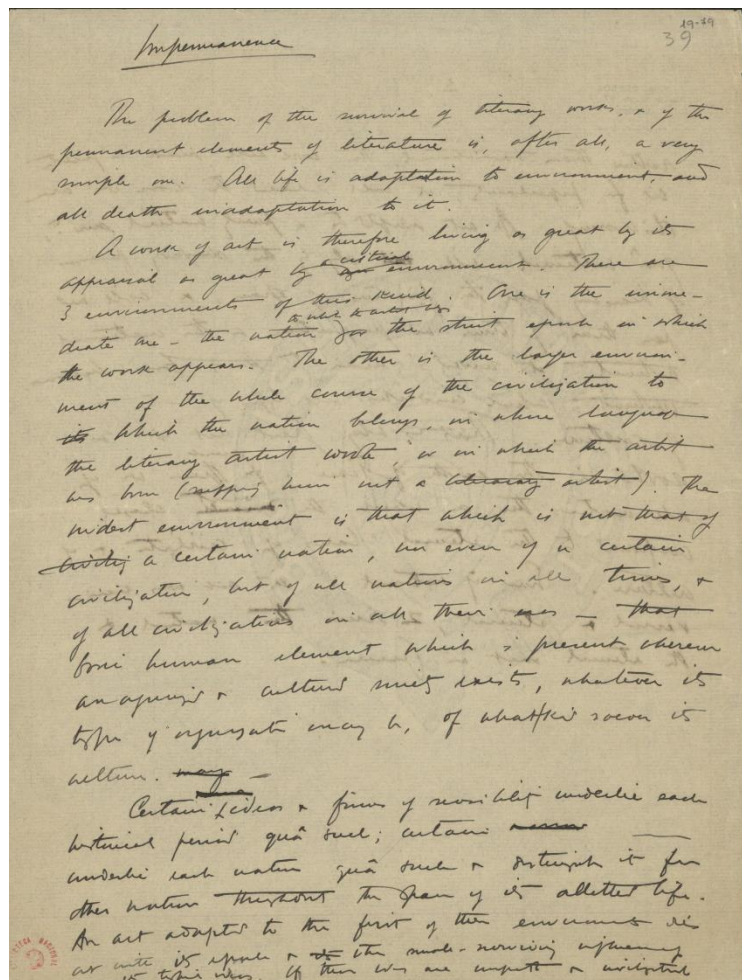 Impermanence
19-39
39
The problem of the survival of literary works, & of the
permanent elements of literature is, after all, a very
simple one. All life is adaptation to environment, and
all death inadaptation to it.
A work of art is therefore living or great by its
appraisal as great by a critical environment. There are
3 environments of this kind. One is the imme-
diate one – the nation to which the artist belongs or the strict epoch in which
the work appears. The other is the larger environ-
ment of the whole course of the civilization to
its which the nation belongs, in whose language
the literary artist wrote, or in which the artist
was born (supposing him not a literary artist). The
widest environment is that which is not that of
a certain nation, nor even of a certain
civilization, but of all nations in all times, &
of all civilizations in all their – that
human element which is present wherever
an organized & cultured society exists, whatever its
type of organisation may be, of whatkind soever its
culture. may –
Certain ideas & forms of sensibility underlie each
historical period quâ such; certain
underlie each nation quâ such & distinguish it from
other nations throughout the span of its allotted life.
An art adapted to the first of these environments dies
out with its epoch & the
its ideas. If these ideas are